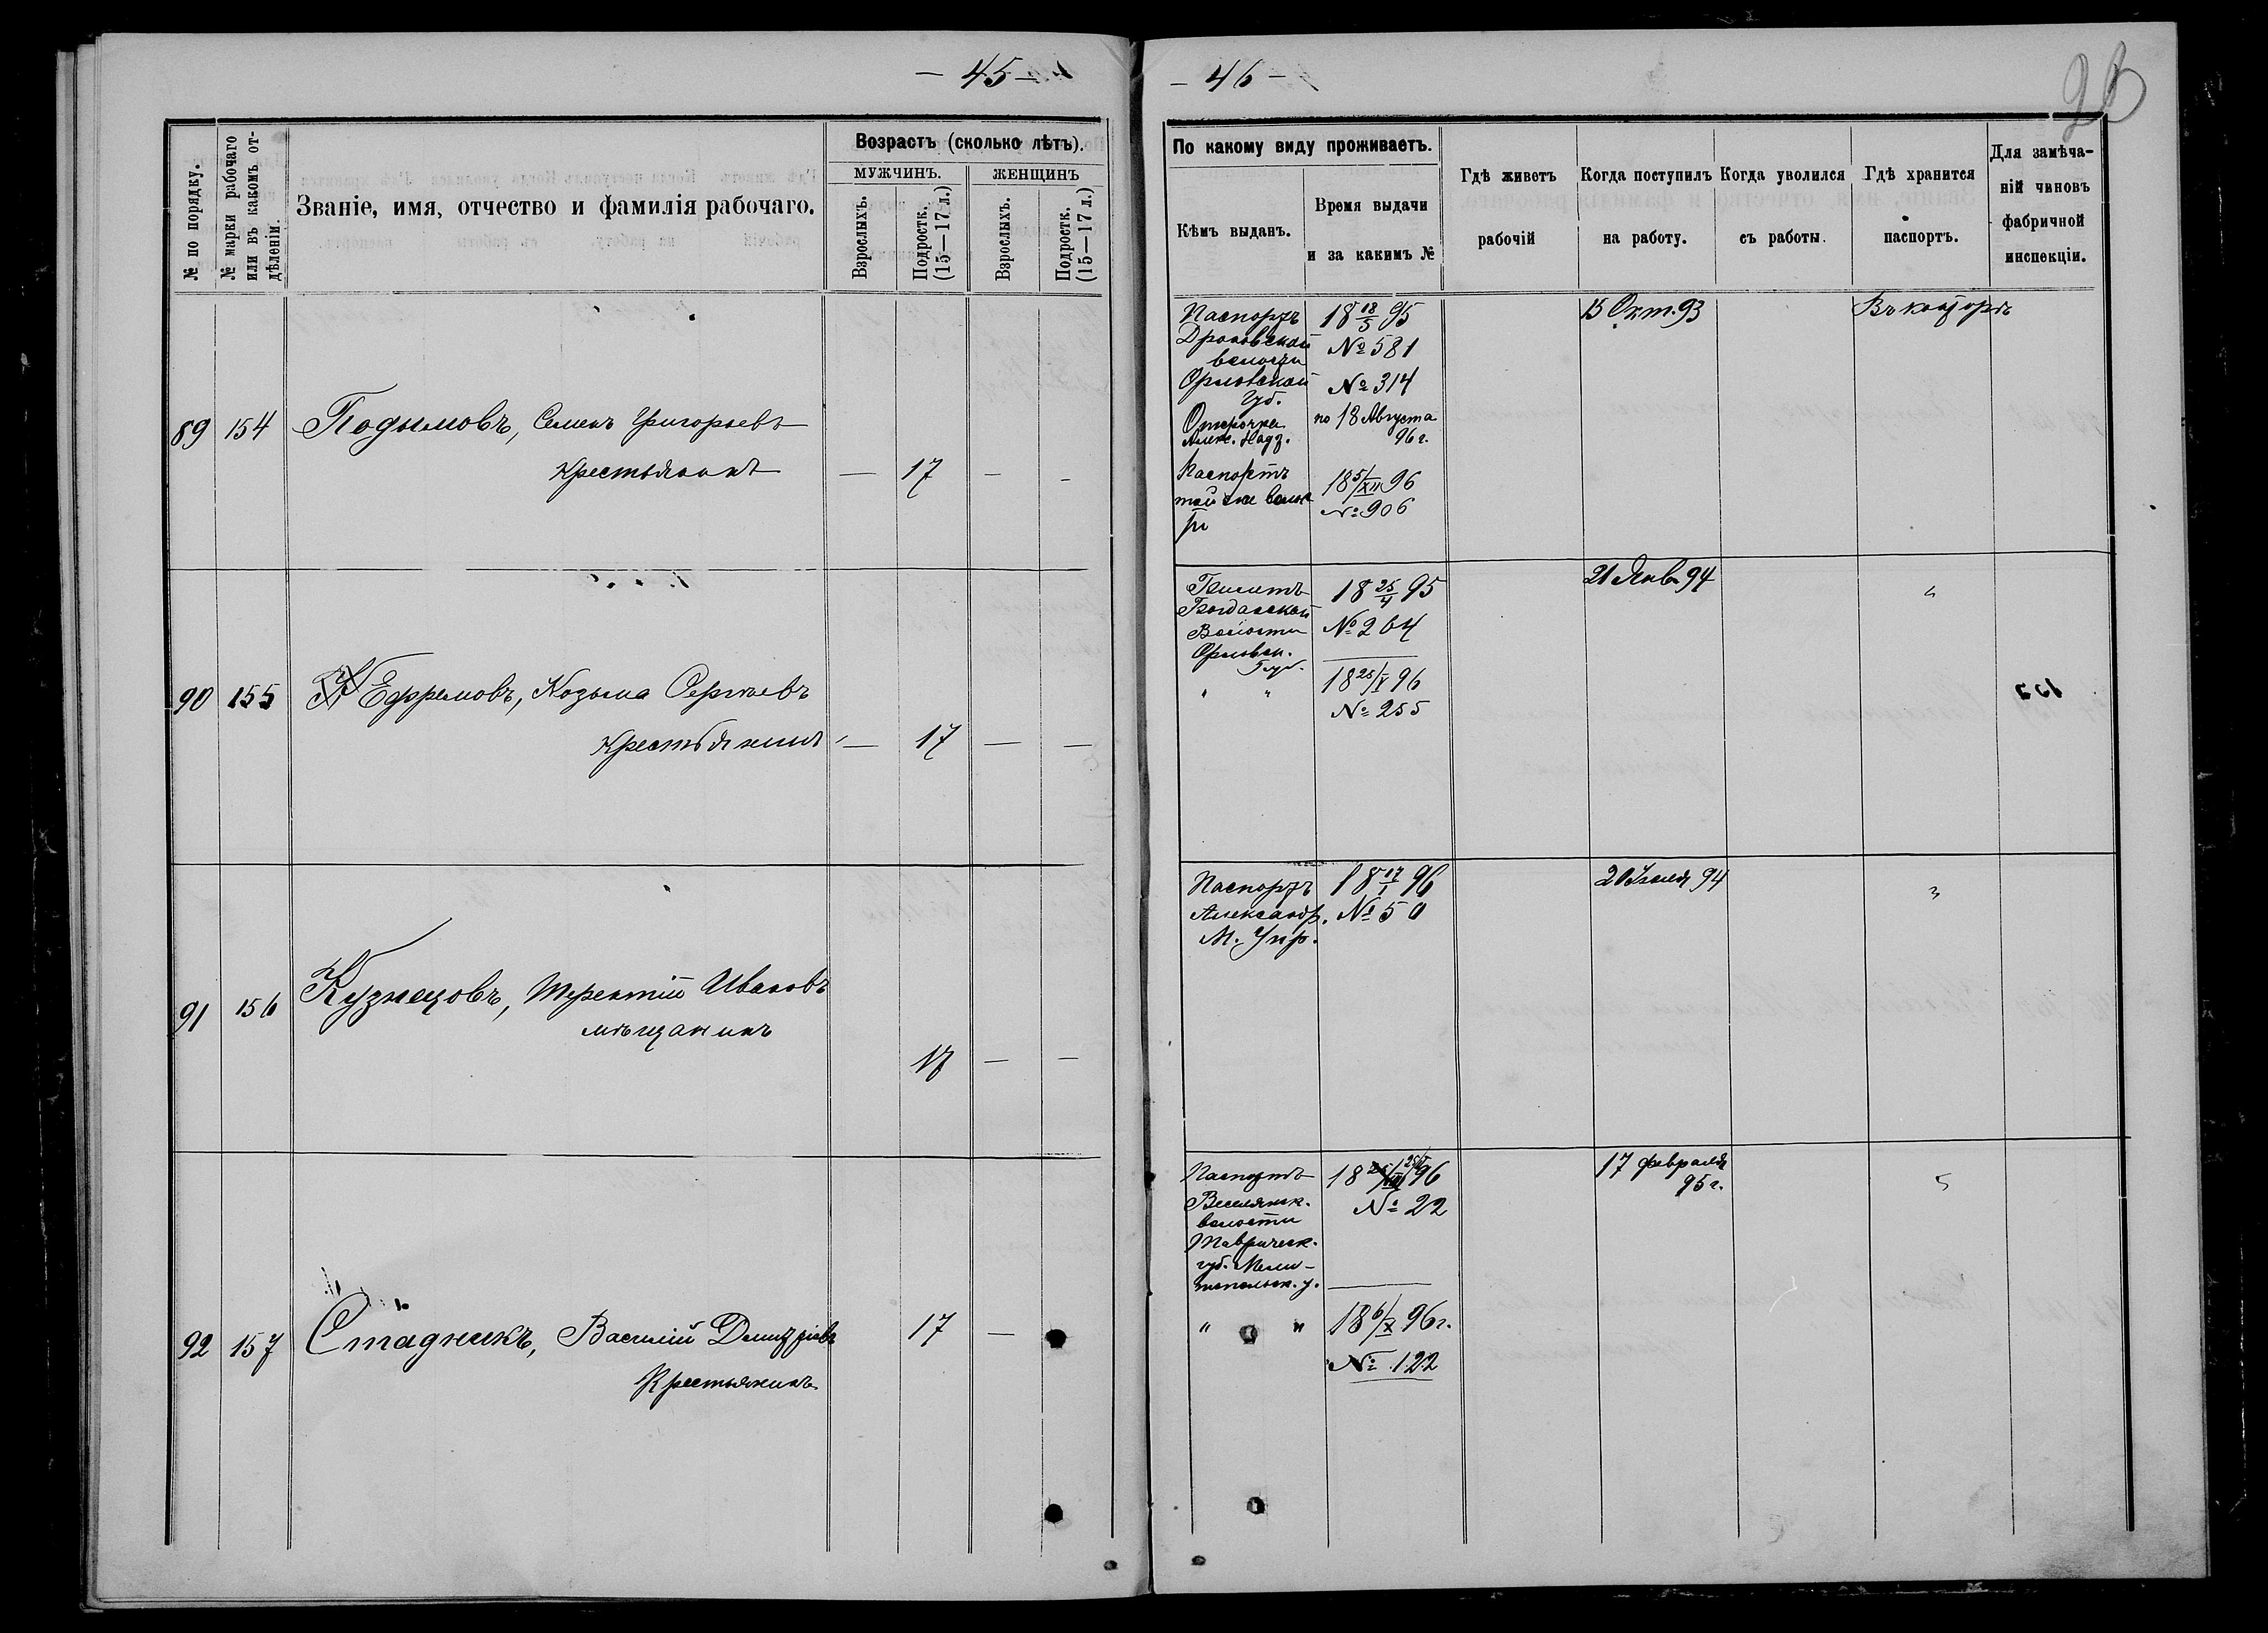 — 45 —
№ по порядку.
№ марки рабочаго
или въ какомъ от-
дѣленіи.
Званіе, имя, отчество и фамилія рабочаго.
Возрастъ (сколько лѣтъ).
МУЖЧИНЪ.
ЖЕНЩИНЪ
Взрослыхъ.
Подростк.
(15—17 л.)
Взрослыхъ.
Подростк.
(15—17 л.)
89 154 Подымовъ, Семенъ Григорьевъ
крестьянинъ — 17 — -
90 155 Ефремовъ, Козьма Сергѣевъ
крестьянинъ — 17 — —
91 156 Кузнецовъ, Терентій Ивановъ
мѣщанинъ
17 — —
92 157 Стадникъ, Василій Дмитріевъ 17 —
Крестьянинъ
— 46 —
По какому виду проживаетъ.
Кѣмъ выданъ.
Время выдачи
и за какимъ №
Гдѣ живетъ
рабочій
Когда поступилъ
на работу.
Когда уволился
съ работы.
Гдѣ хранится
паспортъ.
Для замѣча-
ній чиновъ
фабричной
инспекціи.
Паспортъ 18 18/5 95 15 Окт. 93 Въ конторѣ
Дроновской № 581
волости
Орловской № 314
Губ.
Отсрочка по 18 Августа
Алекс. Надз. 96 г.
Паспортъ 18 5/XII 96
той же волос
№ 906
Билетъ 18 25/4 95 21 Янв. 94 "
Богдановской
Волости № 264
Орловск.
Губ.
" " 18 25/V 96
№ 255
Паспортъ 18 17/I 96 20 Іюля 94 "
Александр. № 50
М. Упр.
Паспортъ 18 96 17 февраля
95 г. "
Веселянск. № 22
волости
Таврическ.
губ. Мели-
топольск. у.
" " 18 6/X 96 г.
№ 122